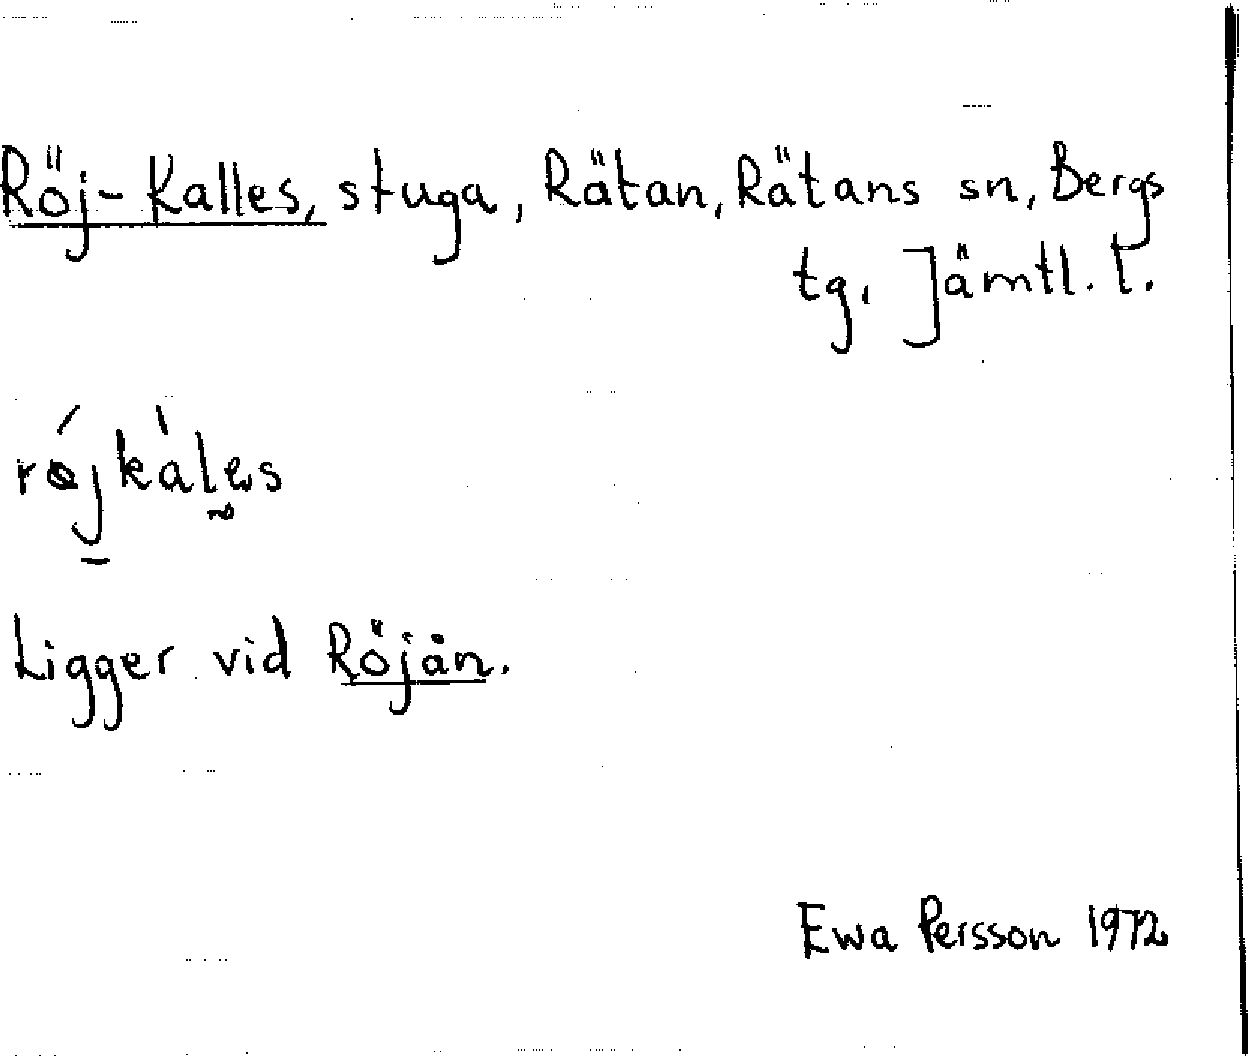 Röj-Kalles, stuga, Rätan, Rätans sn, Bergs
tg, Jämtl. l.
røjkàles
Ligger vid Röjån.
Ewa Persson 1972